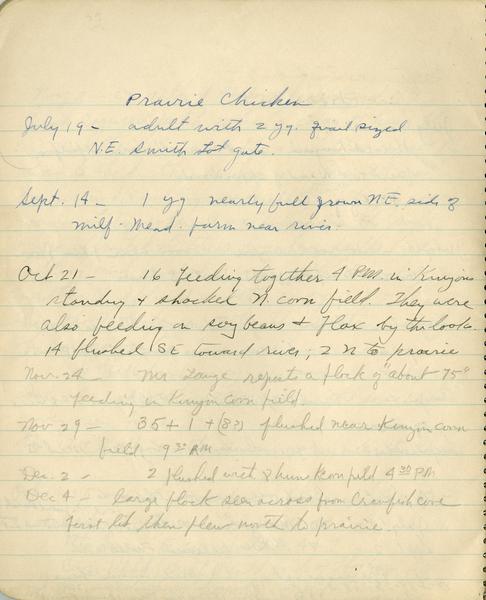 Prairie Chicken
July 19 - adult with 2 yg. quail sized
N.E. Smith Lot gate.
Sept. 14 - 1 yg nearly full grown N.E. side of
Milf. Mead. farm near river.
Oct 21 - 16 feeding together 4 P.M. in Kinyons
standing & shocked N. corn field. They were
also feeding on soybeans & flax by the looks.
14 flushed SE toward river; 2 N to prairie
Nov. 24 - Mr Lange reports a flock of "about 75"
feeding in Kinyon corn field.
Nov 29 - 35 + 1 + (8?) flushed near Kinyon corn
field 9 30 AM
Dec. 2 - 2 flushed corn field 4 30 PM
Dec 4 - Large flock seen across from Crawfish cove
first lit then flew north to prairie.